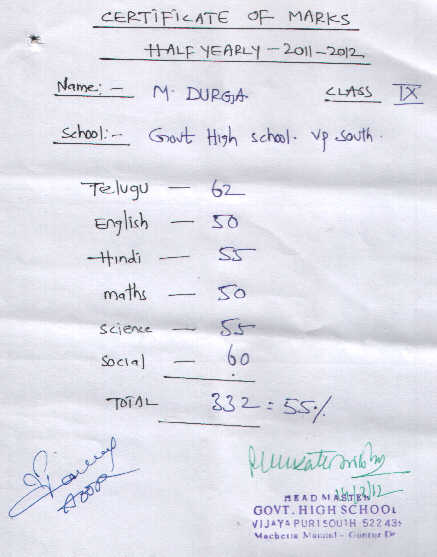 CERTIFICATE OF MARKS
HALF YEARLY - 2011-2012
Name: - M. DURGA. CLASS IX
School: - Govt High school. vp south.
Telugu - 62
English - 50
Hindi - 55
maths - 50
science - 55
social - 60
TOTAL 332 = 55%
HEAD MASTER
GOVT. HIGH SCHOOL
VIJAYAPURI SOUTH 522 43
Macherla Mandal - Guntur Dt